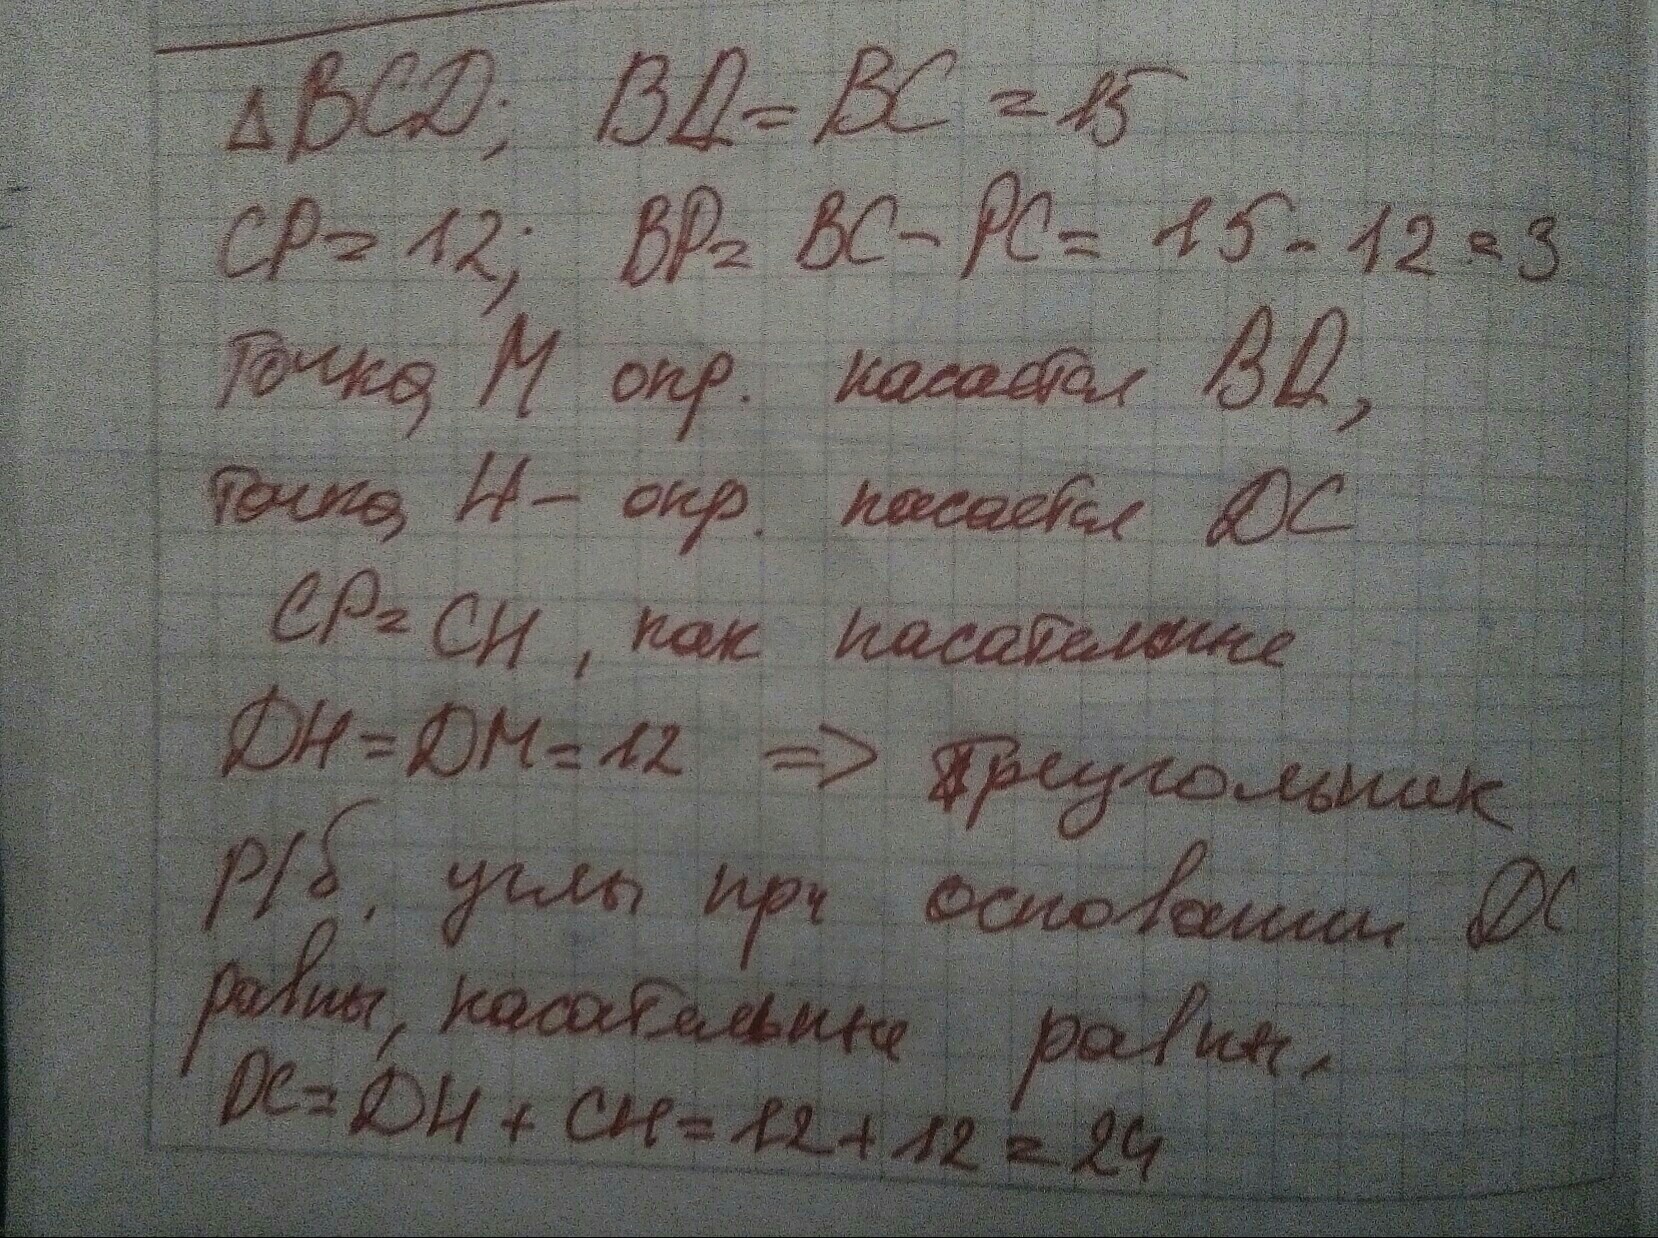 △BCD; BД = BC = 15
CP = 12; BP = BC - PC = 15 - 12 = 3
Точка M окр. касается BД,
точка H - окр. касается DC
CP = CH, как касательные
DH = DM = 12 => треугольник
р/б, углы при основании DC
равны, касательные равны.
DC = DH + CH = 12 + 12 = 24